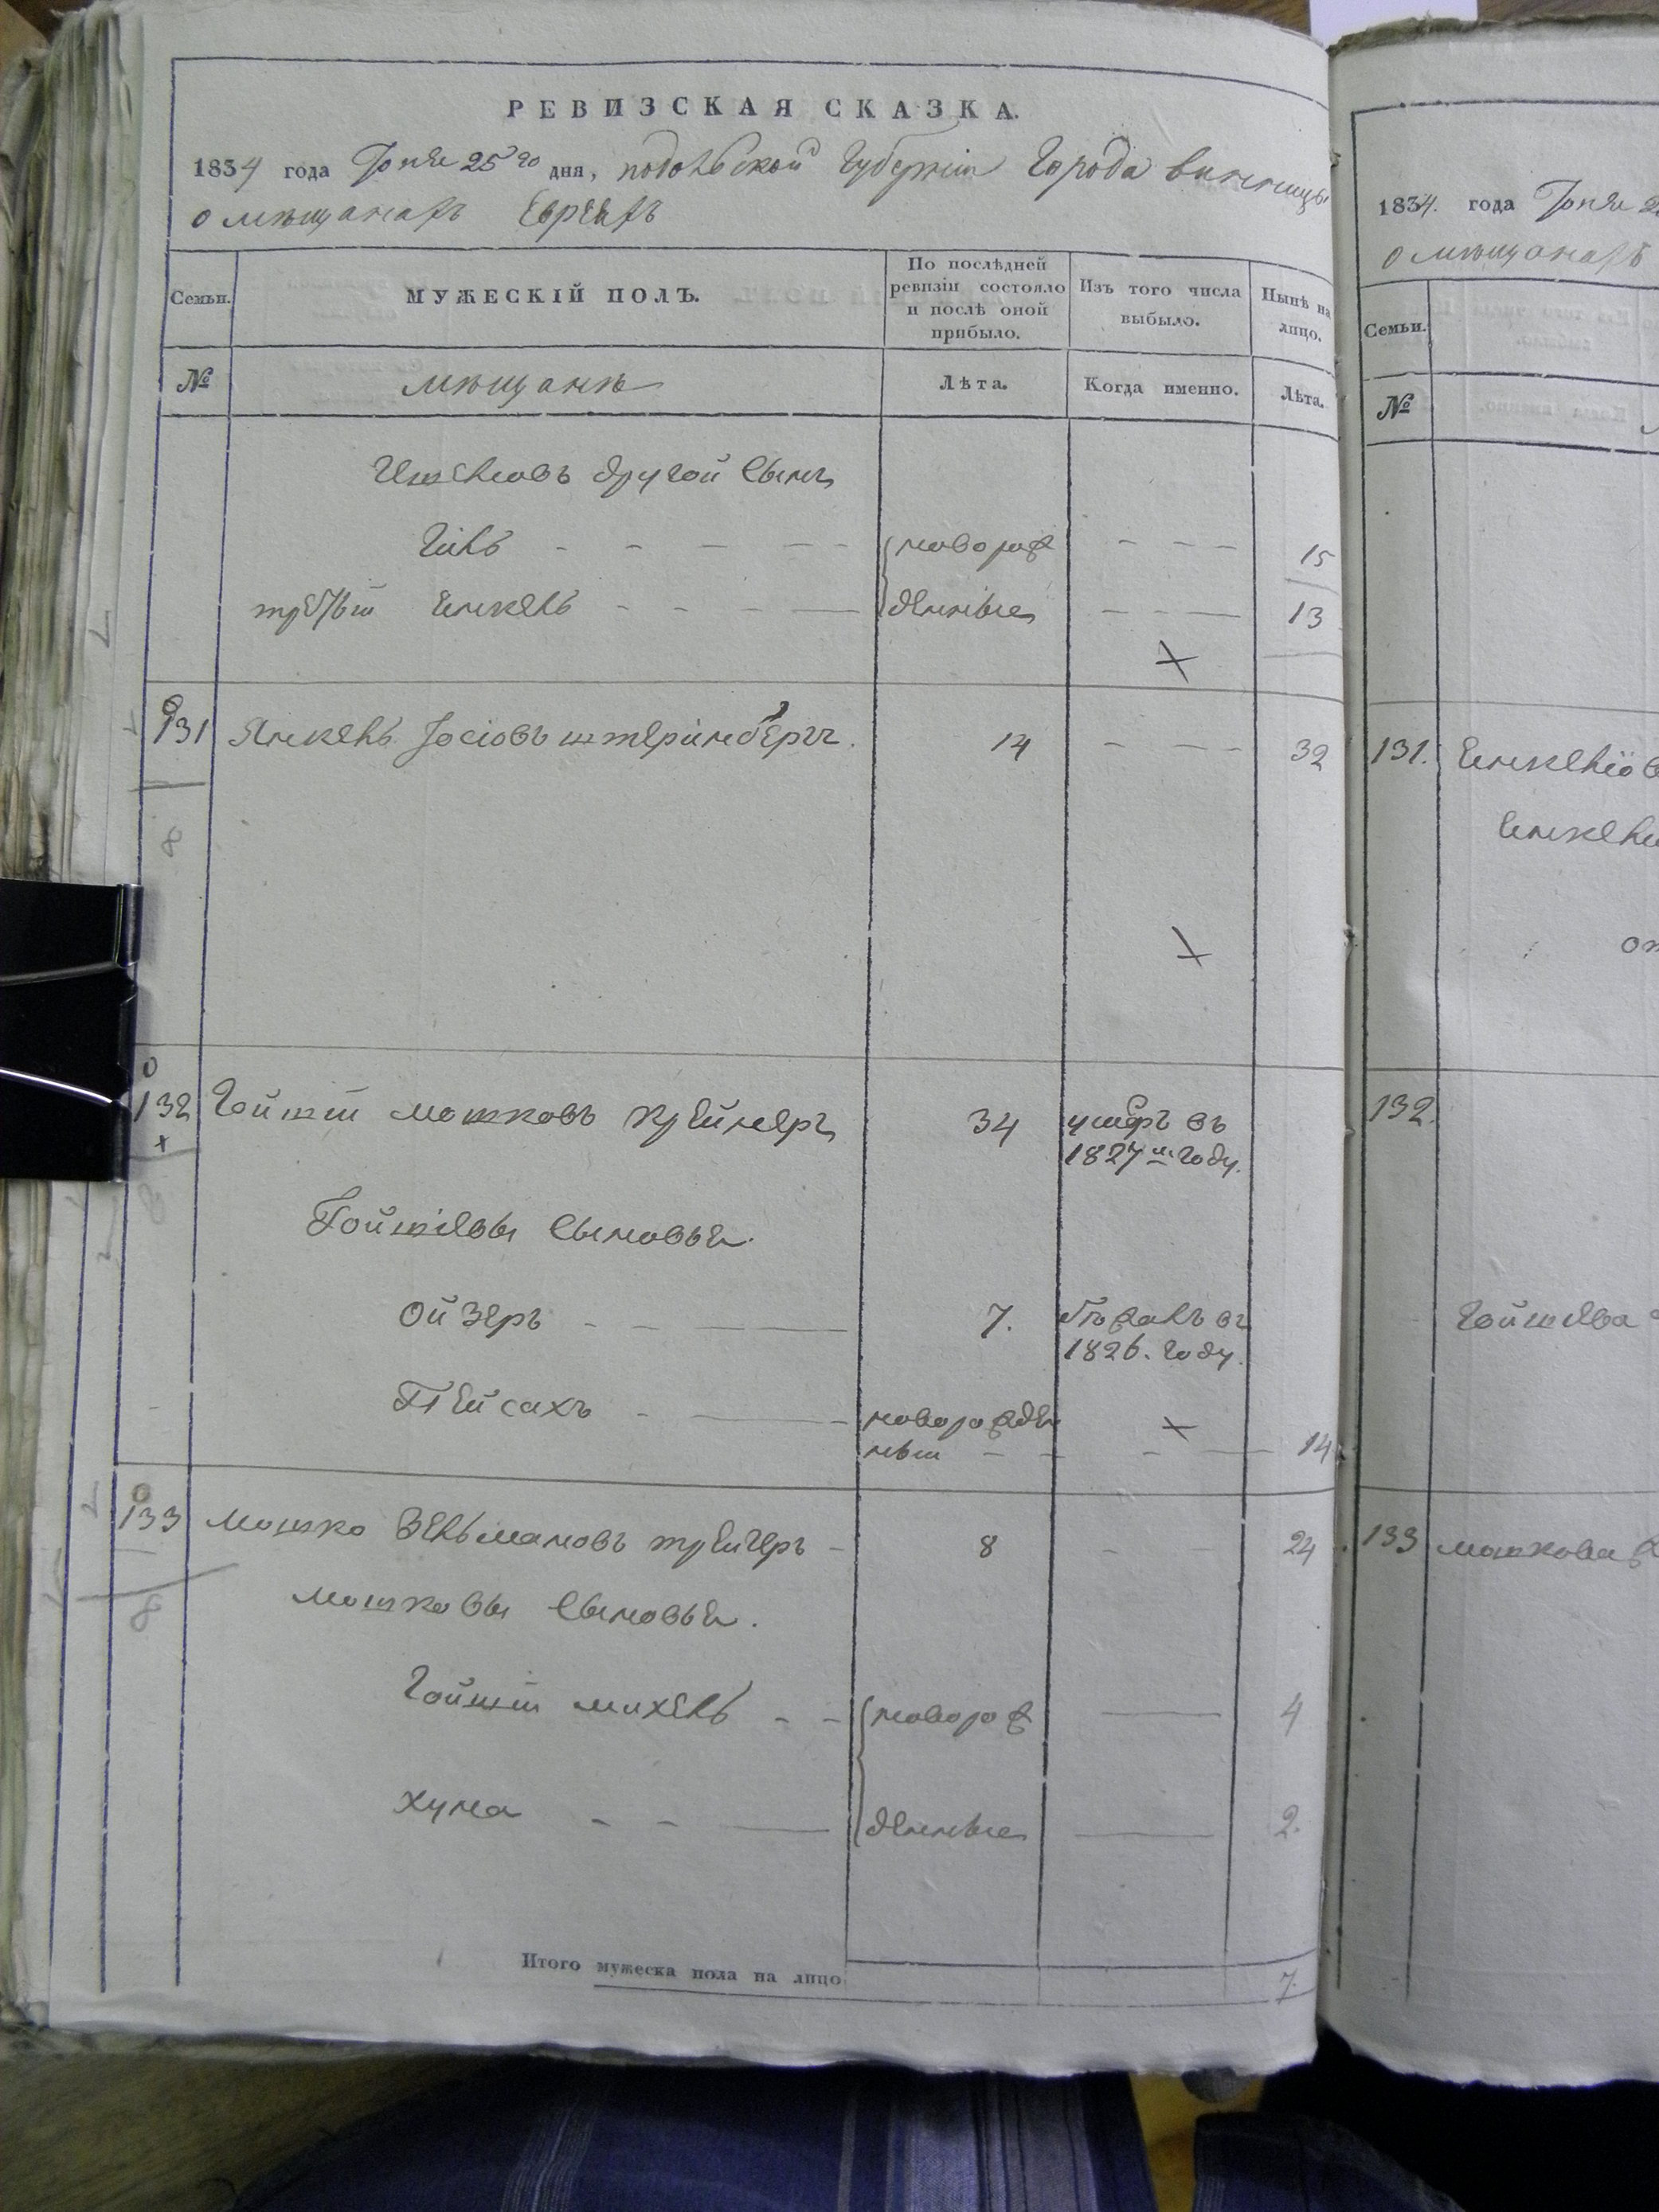 РЕВИЗСКАЯ СКАЗКА.
1834 года Іюня 25го дня, подольской Губерніи Города винницы
о мѣщанахъ Евреяхъ
Семьи.
МУЖЕСКІЙ ПОЛЪ.
По послѣдней ревизіи состояло и послѣ оной прибыло.
Изъ того числа выбыло.
Нынѣ на лицо.
№
мѣщане
Лѣта.
Когда именно.
Лѣта.
другой сынъ
новорож - - - 15
третьій Янкель - - - — денные - - — 13
131 Янкель Іосіовъ штеринбергъ. 14 - - - 32
8
132 Гойшіи мошковъ крейнеръ 34 умеръ въ
1827м году.
Гойшіевы сыновья.
Ойзеръ - - — 7. бѣжалъ въ
1826. году.
Пейсахъ - — новорожден
ныи - - - — 14
133 Мошко Зельмановъ трейгеръ - 8 - - 24
8
мошковы сыновья.
Гойшіи михель - - новорож — 4
Хуна - - — денные — 2.
Итого мужеска пола на лицо 7.
1834. года Іюня 2
о мѣщанахъ
Семьи.
№
131.
132.
Гойшіева
133 мошкова ж